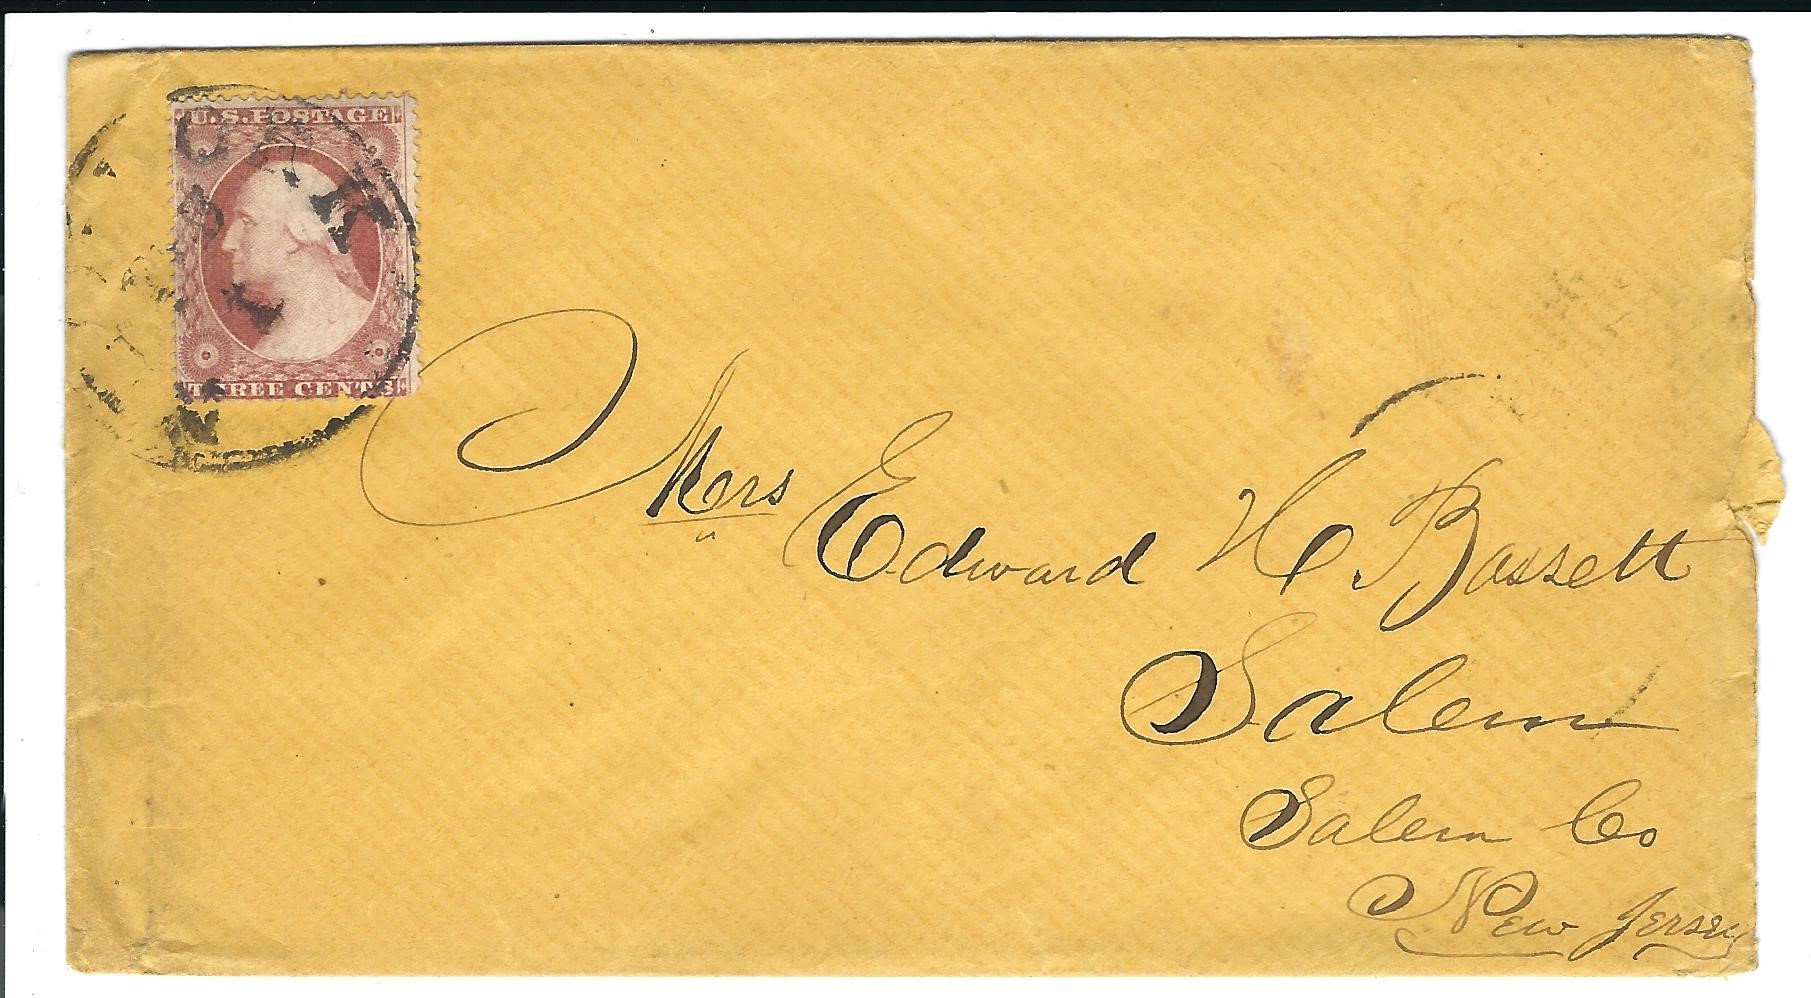 U.S. POSTAGE
THREE CENTS
Mrs Edward H. Bassett
Salem
Salem Co
New Jersey